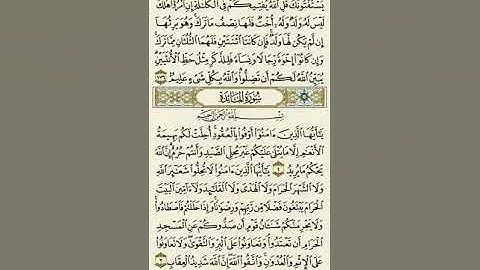 يَسْتَفْتُونَكَ قُلِ ٱللَّهُ يُفْتِيكُمْ فِى ٱلْكَلَٰلَةِ إِنِ ٱمْرُؤٌا۟ هَلَكَ
لَيْسَ لَهُۥ وَلَدٌ وَلَهُۥٓ أُخْتٌ فَلَهَا نِصْفُ مَا تَرَكَ وَهُوَ يَرِثُهَآ
إِن لَّمْ يَكُن لَّهَا وَلَدٌ فَإِن كَانَتَا ٱثْنَتَيْنِ فَلَهُمَا ٱلثُّلُثَانِ مِمَّا تَرَكَ
وَإِن كَانُوٓا۟ إِخْوَةً رِّجَالًا وَنِسَآءً فَلِلذَّكَرِ مِثْلُ حَظِّ ٱلْأُنثَيَيْنِ
يُبَيِّنُ ٱللَّهُ لَكُمْ أَن تَضِلُّوا۟ وَٱللَّهُ بِكُلِّ شَىْءٍ عَلِيمٌۢ ١٧٦
سُورَةُ ٱلْمَائِدَةِ
بِسْمِ ٱللَّهِ ٱلرَّحْمَٰنِ ٱلرَّحِيمِ
يَٰٓأَيُّهَا ٱلَّذِينَ ءَامَنُوٓا۟ أَوْفُوا۟ بِٱلْعُقُودِ أُحِلَّتْ لَكُم بَهِيمَةُ
ٱلْأَنْعَٰمِ إِلَّا مَا يُتْلَىٰ عَلَيْكُمْ غَيْرَ مُحِلِّى ٱلصَّيْدِ وَأَنتُمْ حُرُمٌ إِنَّ ٱللَّهَ
يَحْكُمُ مَا يُرِيدُ ١ يَٰٓأَيُّهَا ٱلَّذِينَ ءَامَنُوا۟ لَا تُحِلُّوا۟ شَعَٰٓئِرَ ٱللَّهِ
وَلَا ٱلشَّهْرَ ٱلْحَرَامَ وَلَا ٱلْهَدْىَ وَلَا ٱلْقَلَٰٓئِدَ وَلَآ ءَآمِّينَ ٱلْبَيْتَ
ٱلْحَرَامَ يَبْتَغُونَ فَضْلًا مِّن رَّبِّهِمْ وَرِضْوَٰنًا وَإِذَا حَلَلْتُمْ فَٱصْطَادُوا۟
وَلَا يَجْرِمَنَّكُمْ شَنَـَٔانُ قَوْمٍ أَن صَدُّوكُمْ عَنِ ٱلْمَسْجِدِ
ٱلْحَرَامِ أَن تَعْتَدُوا۟ وَتَعَاوَنُوا۟ عَلَى ٱلْبِرِّ وَٱلتَّقْوَىٰ وَلَا تَعَاوَنُوا۟
عَلَى ٱلْإِثْمِ وَٱلْعُدْوَٰنِ وَٱتَّقُوا۟ ٱللَّهَ إِنَّ ٱللَّهَ شَدِيدُ ٱلْعِقَابِ ٢